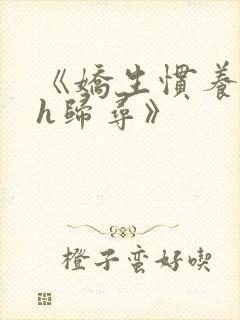 《嬌生慣養
h歸尋》
橙子蛮好喫